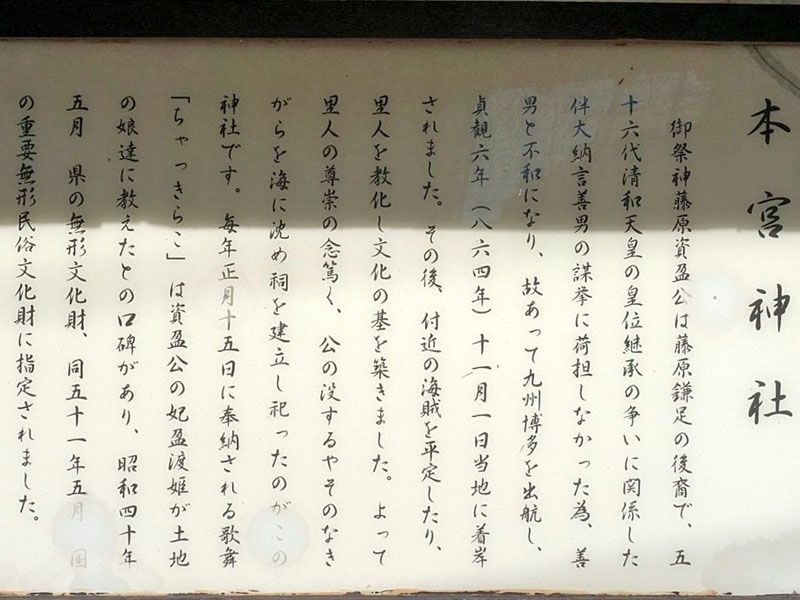 本宮神社
御祭神藤原資盈公は藤原鎌足の後裔で、五
十六代清和天皇の皇位継承の争いに関係した
伴大納言善男の謀挙に荷担しなかった為、善
男と不和になり、故あって九州博多を出航し、
貞観六年(八六四年)十一月一日当地に着岸
されました。その後、付近の海賊を平定したり、
里人を教化し文化の基を築きました。よって
里人の尊崇の念篤く、公の没するやそのなき
がらを海に沈め祠を建立し祀ったのがこの
神社です。毎年正月十五日に奉納される歌舞
「ちゃっきらこ」は資盈公の妃盈渡姫が土地
の娘達に教えたとの口碑があり、昭和四十年
五月県の無形文化財、同五十一年五月国
の重要無形民俗文化財に指定されました。